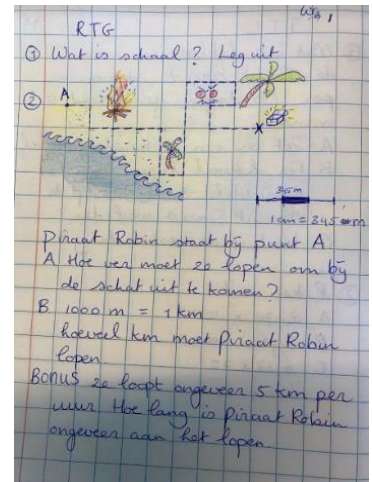 Wb 1
RTG
① Wat is schaal? Leg uit
② A
x
345m
1 cm = 345 m
Piraat Robin staat bij punt A
A Hoe ver moet ze lopen om bij
de schat uit te komen?
B 1000 m = 1 km
hoeveel km moet Piraat Robin
lopen
BONUS ze loopt ongeveer 5 km per
uur. Hoe lang is Piraat Robin
ongeveer aan het lopen